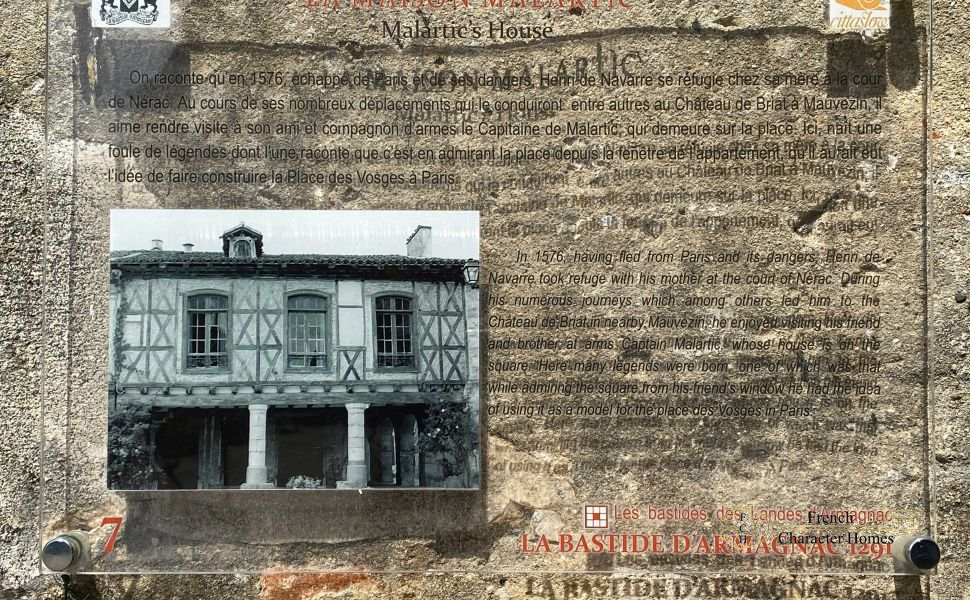 LA MAISON MALARTIC
cittaslow
Malartic's House
On raconte qu'en 1576, échappé de Paris et de ses dangers, Henri de Navarre se réfugie chez sa mère à la cour
de Nérac. Au cours de ses nombreux déplacements qui le conduiront entre autres au Château de Briat à Mauvezin, il
aime rendre visite à son ami et compagnon d'armes le Capitaine de Malartic, qui demeure sur la place. Ici, naît une
foule de légendes dont l'une raconte que c'est en admirant la place depuis la fenêtre de l'appartement, qu'il aurait eut
l'idée de faire construire la Place des Vosges à Paris.
In 1576, having fled from Paris and its dangers, Henri de
Navarre took refuge with his mother at the court of Nérac. During
his numerous journeys which among others led him to the
Château de Briat in nearby Mauvezin, he enjoyed visiting his friend
and brother at arms Captain Malartic, whose house is on the
square. Here many legends were born, one of which was that
while admiring the square from his friend's window he had the idea
of using it as a model for the place des Vosges in Paris.
7
Les bastides des Landes d'Armagnac
French
Character Homes
LA BASTIDE D'ARMAGNAC 1291